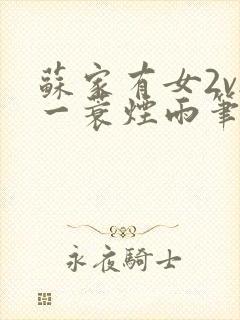 蘇家有女2v
一蓑煙雨筆
永夜騎士